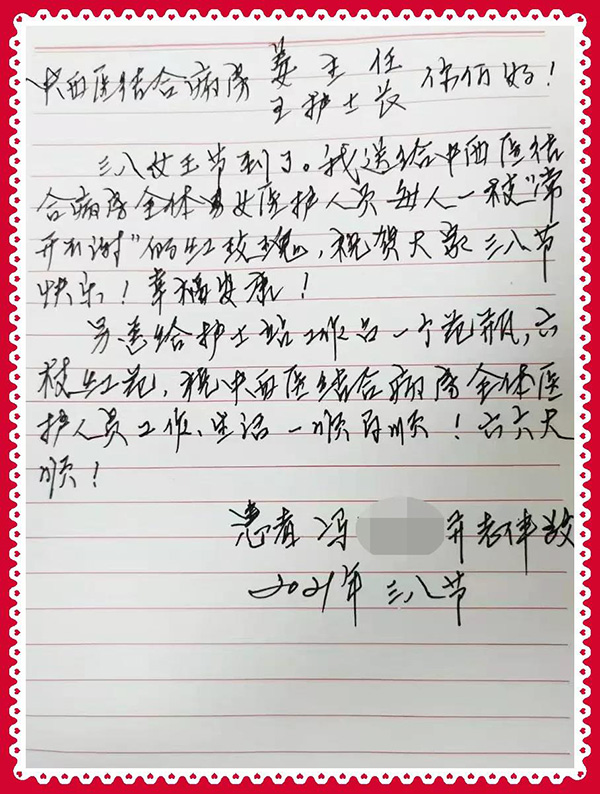 中西医结合病房 姜主任 王护士长 你们好!
三八女王节到了。我送给中西医结
合病房全体男女医护人员每人一枝“常
开不谢”的红玫瑰,祝贺大家三八节
快乐!幸福安康!
另送给护士站工作台一个花瓶,六
枝红花,祝中西医结合病房全体医
护人员工作、生活一顺百顺!六六大
顺!
患者 冯 并老伴致
2021年 三八节